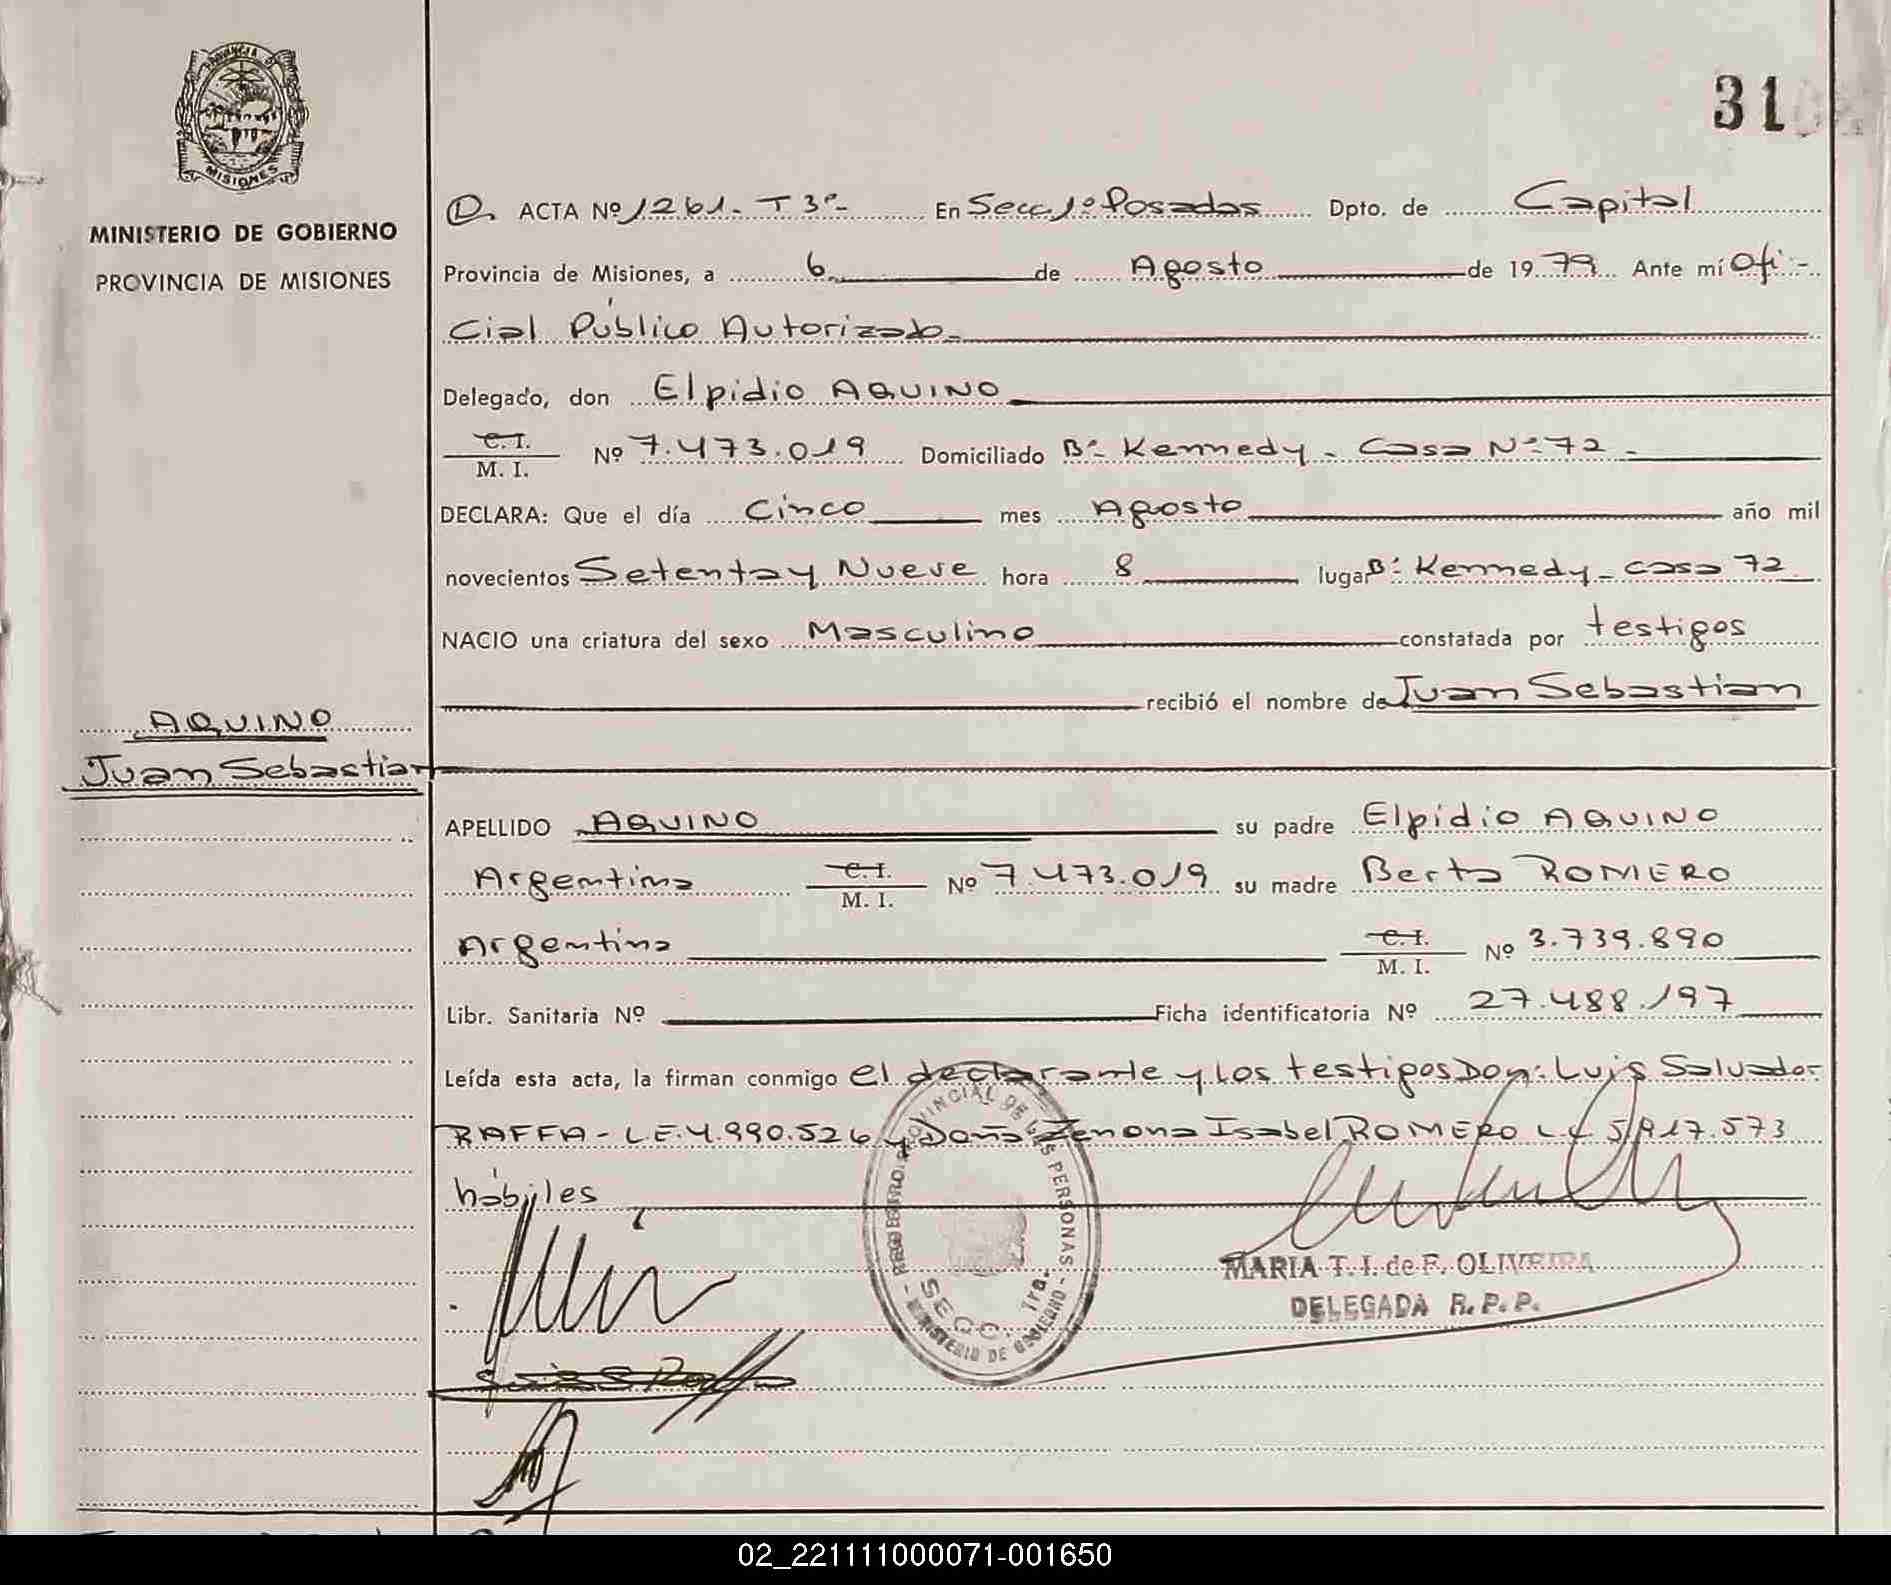 PROVINCIA DE
MISIONES
MINISTERIO DE GOBIERNO
PROVINCIA DE MISIONES
31
D. ACTA Nº 1261.- T 3º- En Secc. 1º Posadas Dpto. de Capital
Provincia de Misiones, a 6 de Agosto de 1979 Ante mí Ofi-
cial Público Autorizado.-
Delegado, don Elpidio AQUINO
C.I. / M. I. Nº 7.473.019 Domiciliado Bº- Kennedy - Casa Nº 72 -
DECLARA: Que el día Cinco mes Agosto año mil
novecientos Setenta y Nueve hora 8 lugar Bº Kennedy - casa 72
NACIO una criatura del sexo Masculino constatada por testigos
recibió el nombre de Juan Sebastian
AQUINO
Juan Sebastian
APELLIDO AQUINO su padre Elpidio AQUINO
Argentina C.I. / M. I. Nº 7.473.019 su madre Berta ROMERO
Argentina C.I. / M. I. Nº 3.739.890
Libr. Sanitaria Nº Ficha identificatoria Nº 27.488.197
Leída esta acta, la firman conmigo el declarante y los testigos Don: Luis Salvador
RAFFA - L.E. 4.990.526 y Doña Zenona Isabel ROMERO L.C 5.917.573
hábiles
PROVINCIAL DE LAS PERSONAS - MINISTERIO DE GOBIERNO -
SECC. 1ra.
MARIA T. I. de F. OLIVEIRA
DELEGADA R. P. P.
02_221111000071-001650